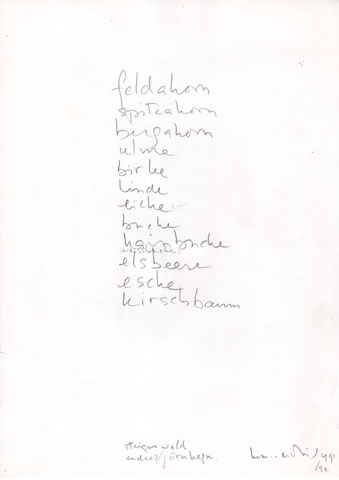 feldahorn
spitzahorn
bergahorn
ulme
birke
linde
eiche
buche
hainbuche
elsbeere
esche
kirschbaum
steigerwald